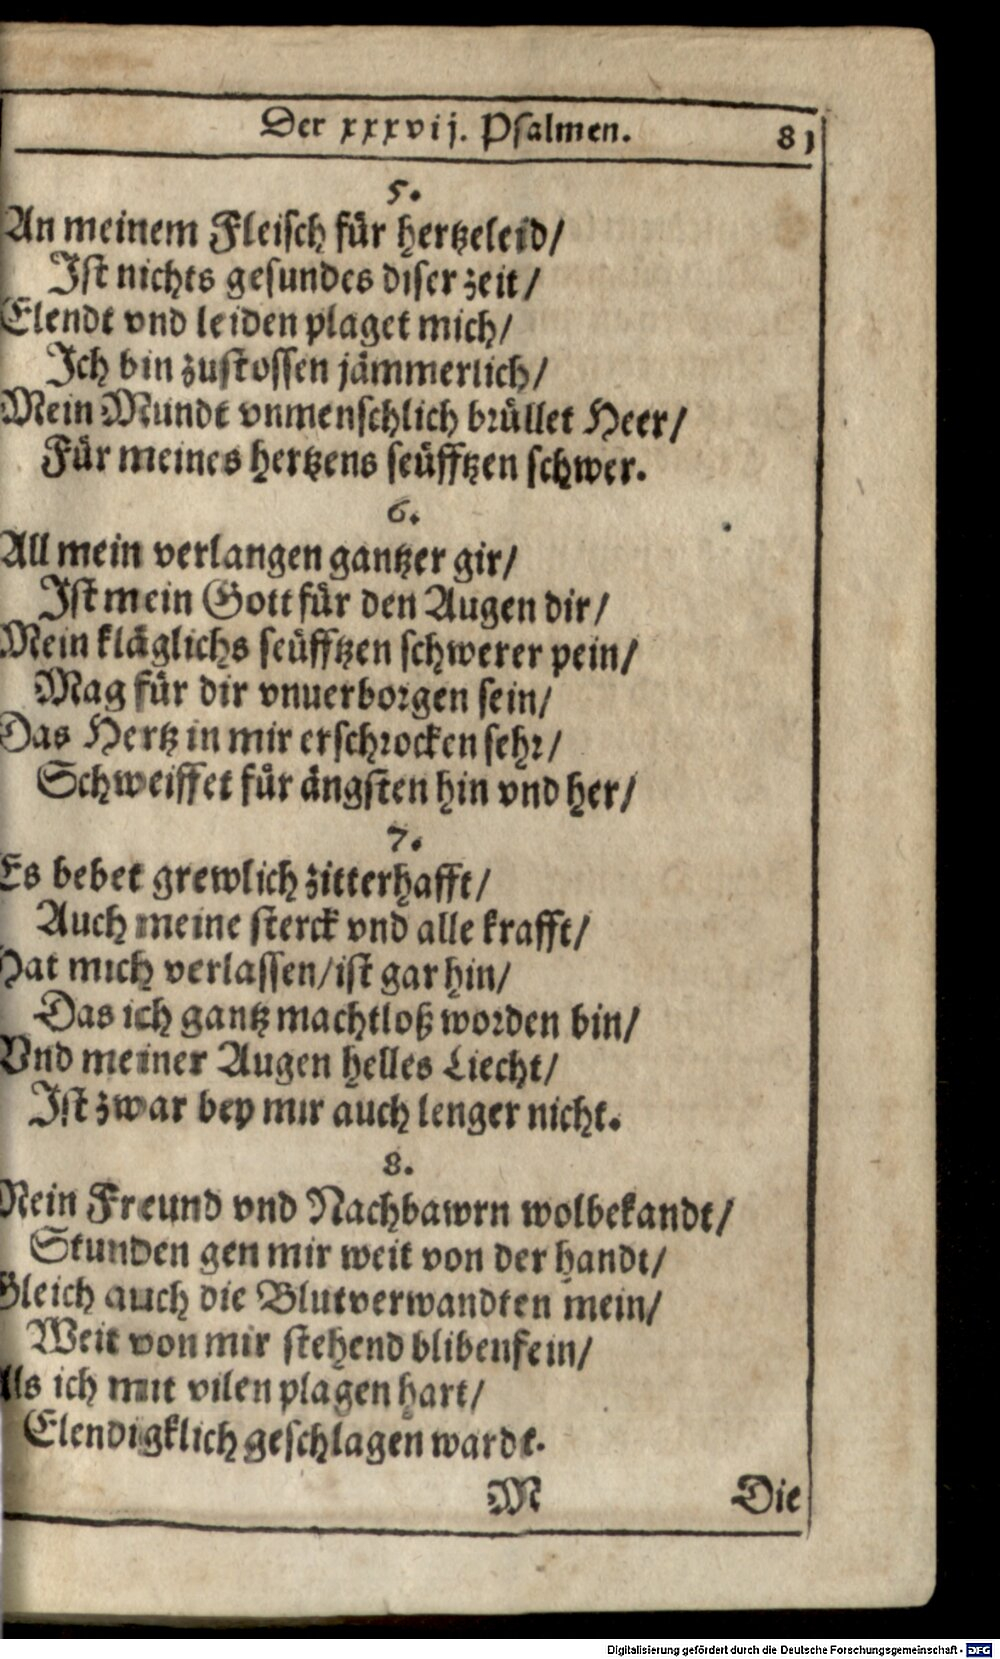 Der xxxvij. Psalmen. 81
5.
An meinem Fleisch für hertzeleid/
Ist nichts gesundes diser zeit/
Elendt vnd leiden plaget mich/
Ich bin zustossen jämmerlich/
Mein Mundt vnmenschlich brüllet Heer/
Für meines hertzens seüfftzen schwer.
6.
All mein verlangen gantzer gir/
Ist mein Gott für den Augen dir/
Mein kläglichs seüfftzen schwerer pein/
Mag für dir vnuerborgen sein/
Das Hertz in mir erschrocken sehr/
Schweiffet für ängsten hin vnd her/
7.
Es bebet grewlich zitterhafft/
Auch meine sterck vnd alle krafft/
Hat mich verlassen/ist gar hin/
Das ich gantz machtloß worden bin/
Vnd meiner Augen helles Liecht/
Ist zwar bey mir auch lenger nicht.
8.
Mein Freund vnd Nachbawrn wolbekandt/
Stunden gen mir weit von der handt/
Gleich auch die Blutverwandten mein/
Weit von mir stehend bliben fein/
Als ich mit vilen plagen hart/
Elendigklich geschlagen wardt.
M Die
Digitalisierung gefördert durch die Deutsche Forschungsgemeinschaft - DFG